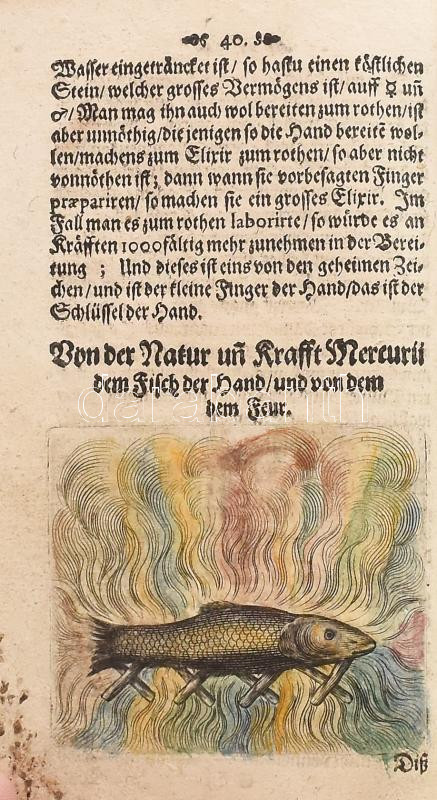 40.
Wasser eingeträncket ist/ so hastu einen köstlichen
Stein/ welcher grosses Vermögens ist/ auff ☿ uñ
♂/ Man mag ihn auch wol bereiten zum rothen/ ist
aber unnöthig/ die jenigen so die Hand bereitẽ wol-
len/ machens zum Elixir zum rothen/ so aber nicht
vonnöthen ist; dann wann sie vorbesagten Finger
præpariren/ so machen sie ein grosses Elixir. Im
Fall man es zum rothen laborirte/ so würde es an
Kräfften 1000fältig mehr zunehmen in der Berei-
tung ; Und dieses ist eins von den geheimen Zei-
chen/ und ist der kleine Finger der Hand/ das ist der
Schlüssel der Hand.
Von der Natur uñ Krafft Mercurii
dem Fisch der Hand/ und von dem
dem Feur.
darabanth
Diß